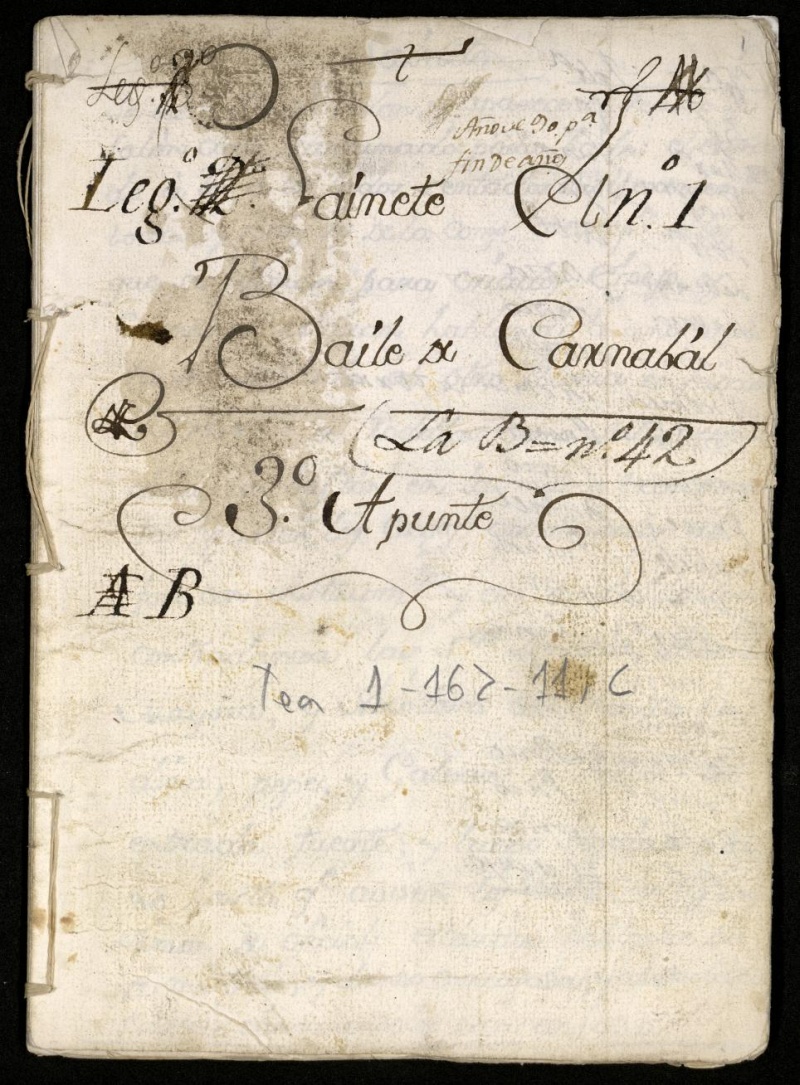 Leg.º 30
Año de 90, pª
fin de año
Leg.º Sainete El n.º 1
Baile de Carnabál
La B = n.º 42
3.º Apunte
A B
Tea 1-162-11, C